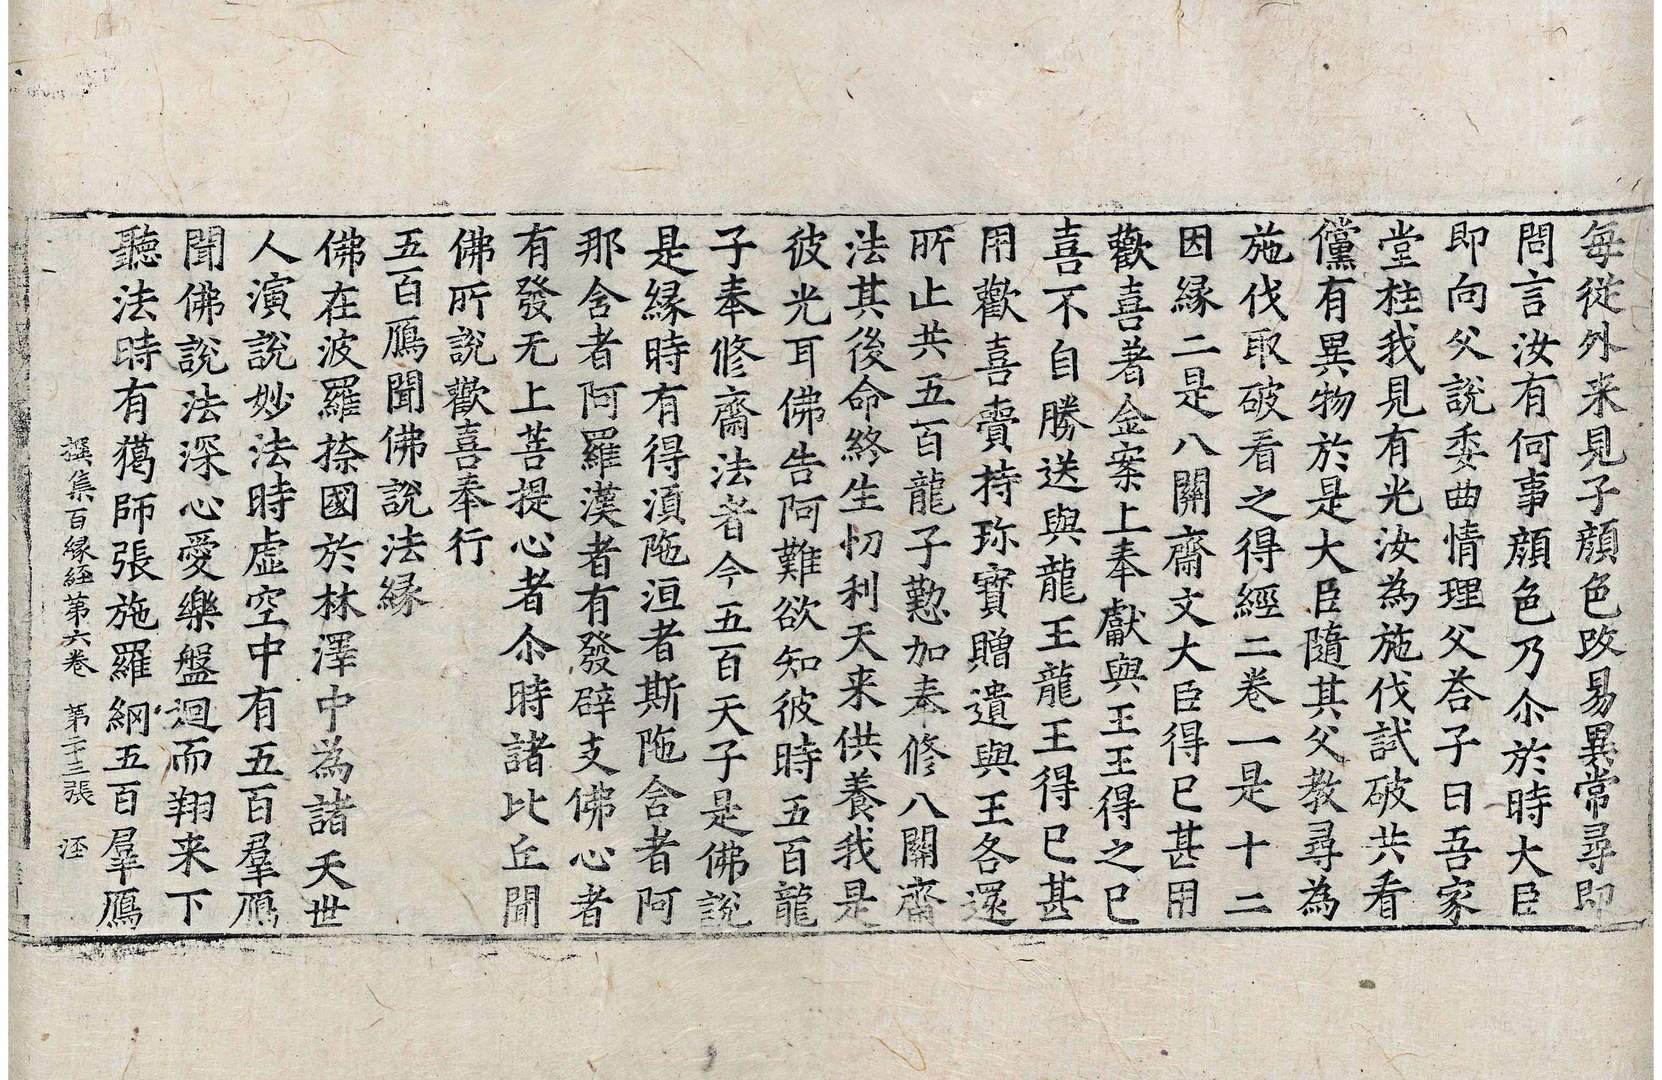 每從外来見子顔色改易異常尋即
問言汝有何事顔色乃尒於時大臣
即向父說委曲情理父荅子曰吾家
堂柱我見有光汝為施伐試破共看
儻有異物於是大臣隨其父教尋為
施伐取破看之得經二卷一是十二
因縁二是八關齋文大臣得已甚用
歡喜著金案上奉獻與王王得之已
喜不自勝送與龍王龍王得已甚
用歡喜賣持珎寶贈遺與王各還
所止共五百龍子懃加奉修八關齋
法其後命終生忉利天来供養我是
彼光耳佛告阿難欲知彼時五百龍
子奉修齋法者今五百天子是佛說
是縁時有得湏陁洹者斯陁含者阿
那含者阿羅漢者有發辟支佛心者
有發无上菩提心者尒時諸比丘聞
佛所說歡喜奉行
五百鴈聞佛說法縁
佛在波羅捺國於林澤中為諸天世
人演說妙法時虛空中有五百羣鴈
聞佛說法深心愛樂盤迴而翔来下
聽法時有獦師張施羅網五百羣鴈
撰集百縁経第六卷 第二十三張